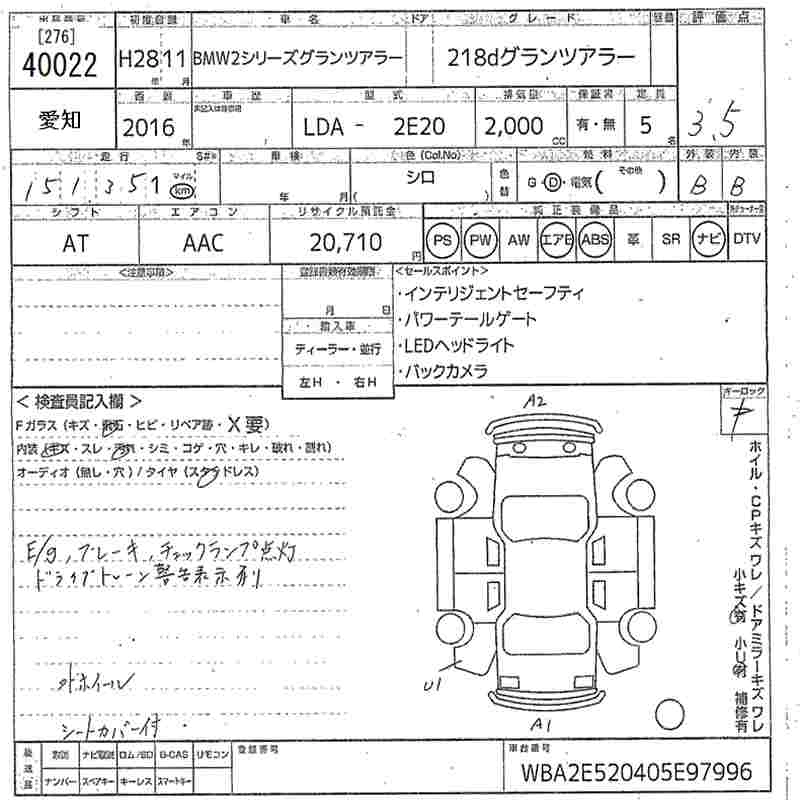 出品番号 初度登録 車名 ドア グレード 評価点
[276]
40022 H28 11 BMW2シリーズグランツアラー 218dグランツアラー
年 月
愛知 西暦 車歴 型式 排気量 保証書 定員
2016 LDA - 2E20 2,000 有・無 5 3.5
年 CC 名
走行 車検 色(Col.No) 色替 燃料 外装 内装
151,351 マイル km 年 月 シロ ( ) G・D・電気( その他 ) B B
シフト エアコン リサイクル預託金 純正装備品
AT AAC 20,710 円 PS PW AW エアB ABS 革 SR ナビ DTV
<注意事項> 登録書類有効期限 <セールスポイント>
月 日
・インテリジェントセーフティ
・パワーテールゲート
・LEDヘッドライト
・バックカメラ
輸入車
ディーラー・並行
左H ・ 右H
キーロック
<検査員記入欄>
Fガラス(キズ・飛石・ヒビ・リペア跡・X要)
内装(キズ・スレ・汚れ・シミ・コゲ・穴・キレ・破れ・割れ)
オーディオ(無し・穴)/タイヤ(スタッドレス)
E/g,ブレーキ,チェックランプ点灯
ドライブトレーン警告表示有り
外ホイール
シートカバー付
A2
U1
A1
ホイル・CPキズワレ/ドアミラーキズワレ
小キズ有 小U有 補修有
後送品 取説 ナビ取説 ロム/SD B-CAS リモコン 登録番号 車台番号
ナンバー スペアキー キーレス スマートキー
WBA2E520405E97996